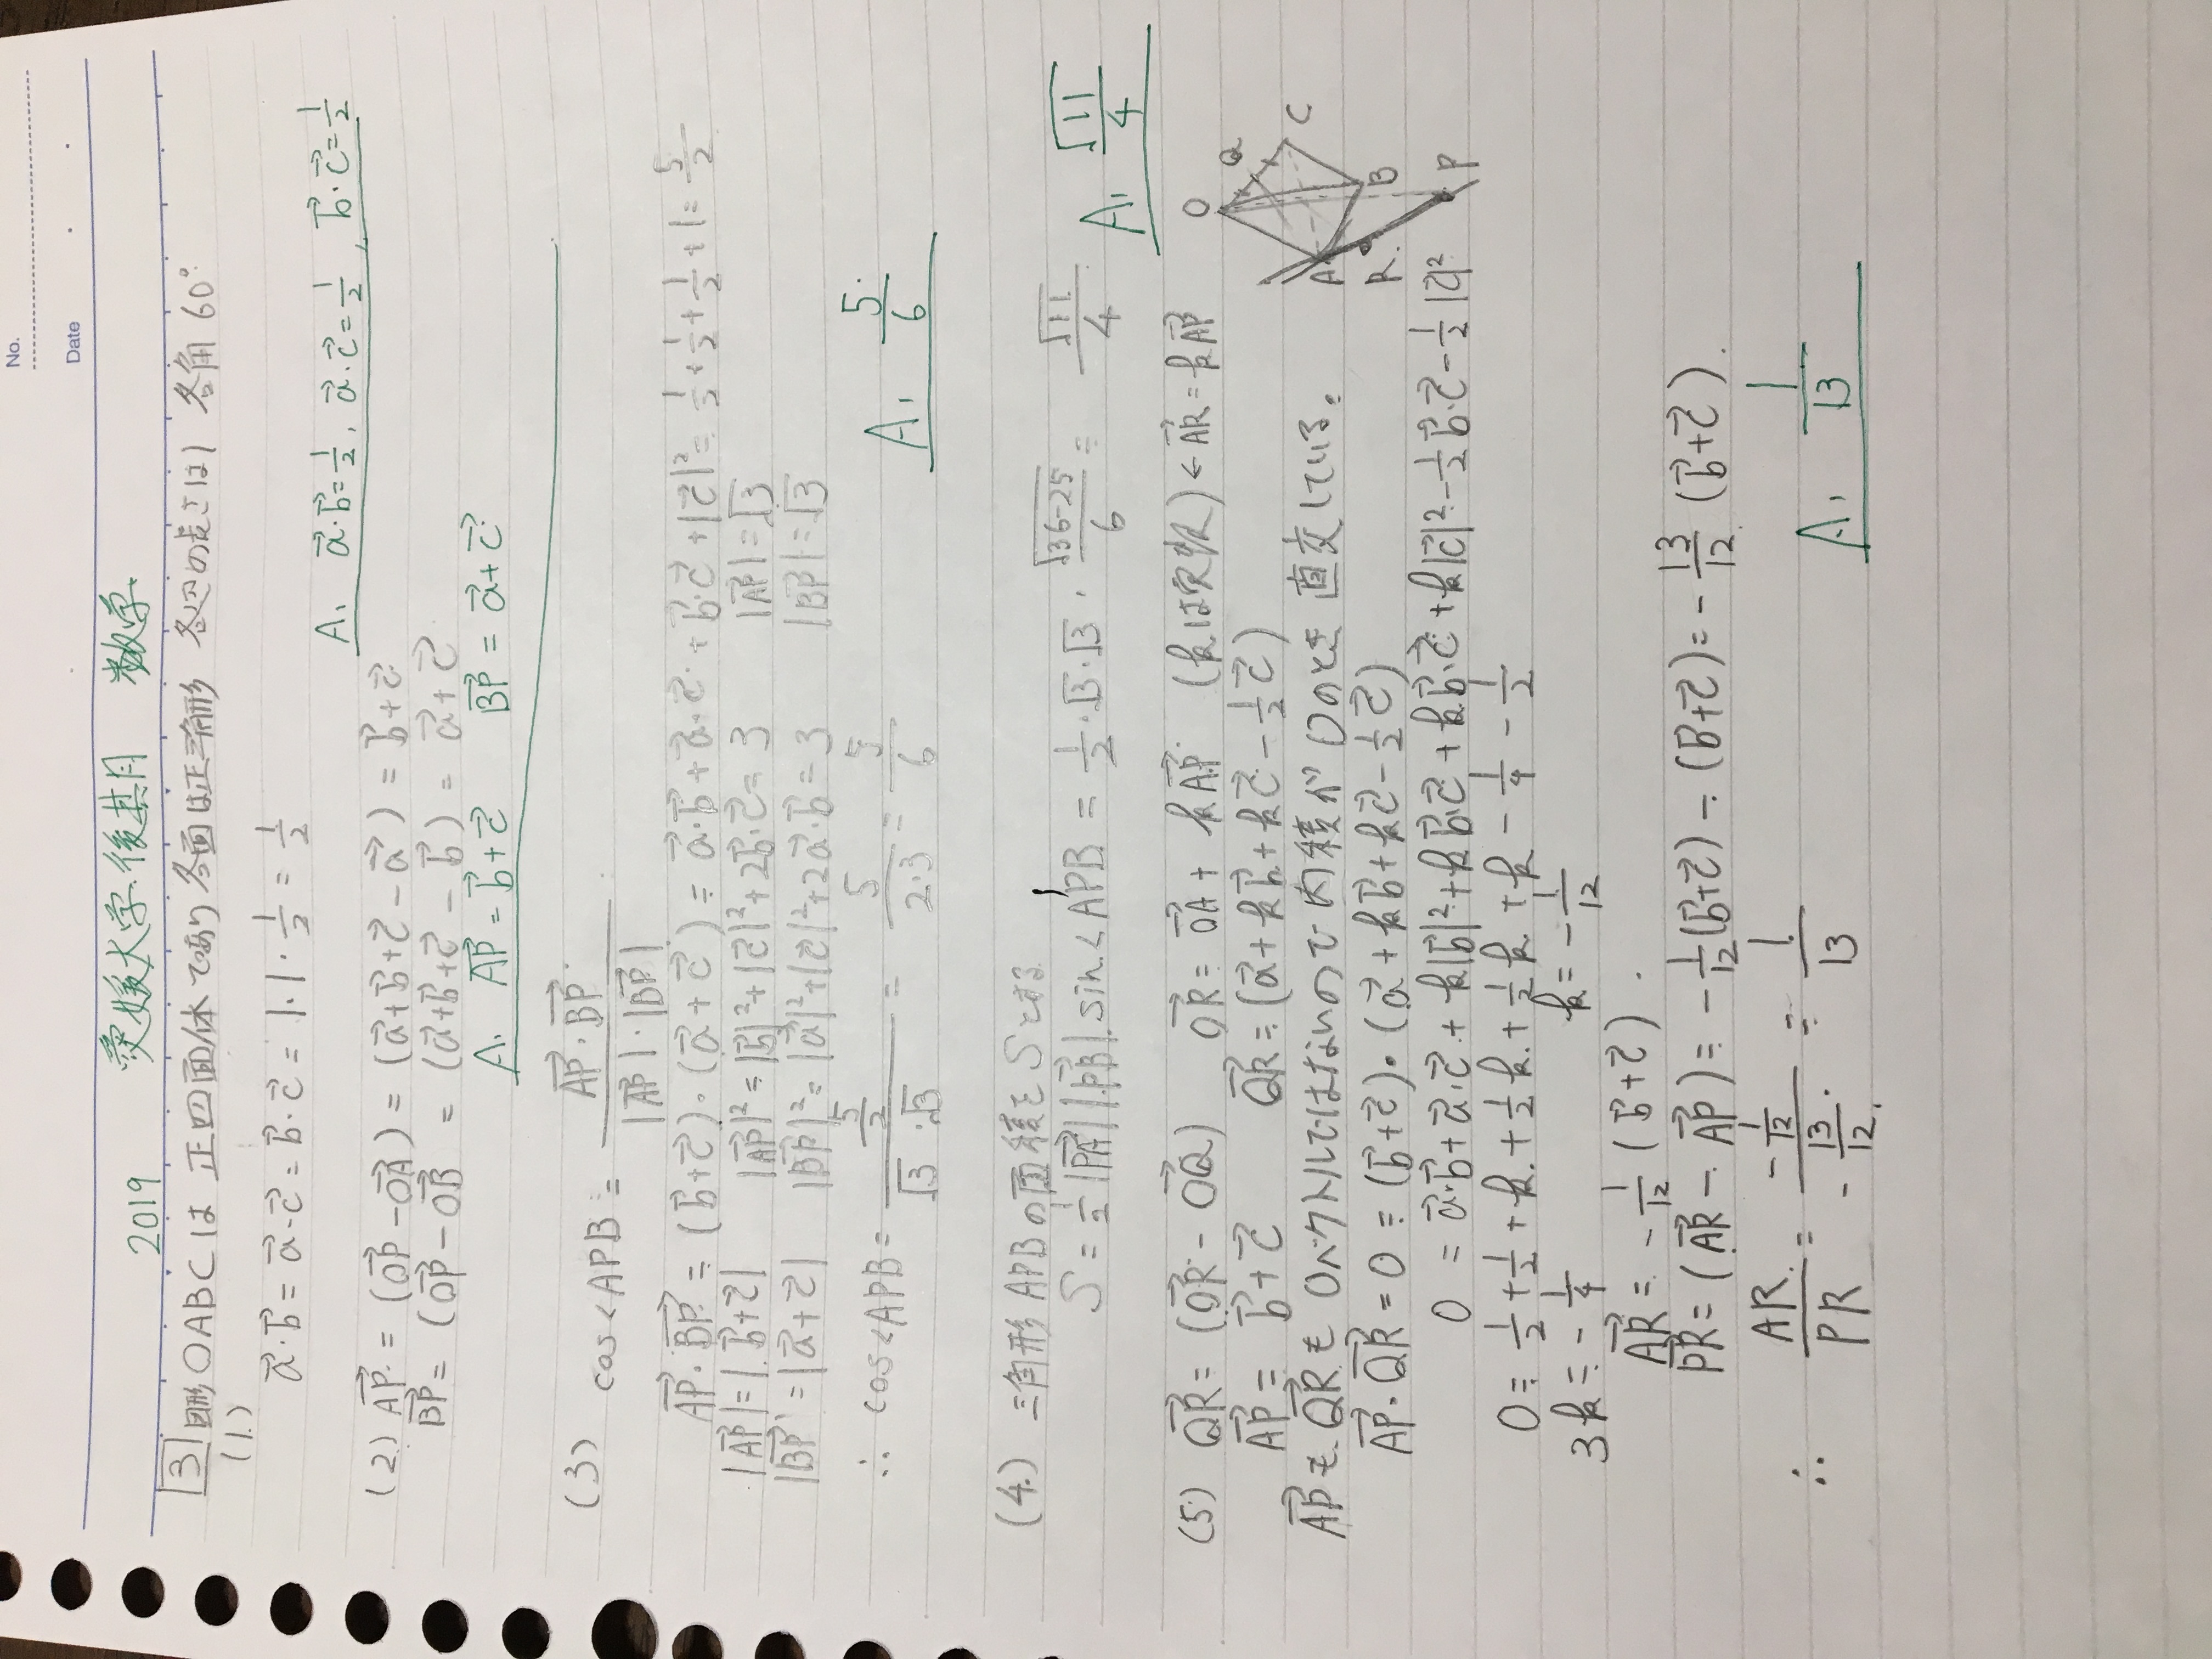 No.
Date
2019 愛媛大学後期 数学
[3] 図形OABCは 正四面体であり 各面は正三角形 各辺の長さは1 各角60°.
(1.)
a⃗·b⃗ = a⃗·c⃗ = b⃗·c⃗ = 1·1·1/2 = 1/2
A. a⃗·b⃗=1/2, a⃗·c⃗=1/2, b⃗·c⃗=1/2
(2.) AP⃗ = (OP⃗ - OA⃗) = (a⃗+b⃗+c⃗ - a⃗) = b⃗+c⃗
BP⃗ = (OP⃗ - OB⃗ = (a⃗+b⃗+c⃗ - b⃗) = a⃗+c⃗
A. AP⃗ = b⃗+c⃗ BP⃗ = a⃗+c⃗
(3) cos<APB = AP⃗·BP⃗ / |AP⃗|·|BP⃗|
AP⃗·BP⃗ = (b⃗+c⃗)·(a⃗+c⃗) = a⃗·b⃗+a⃗·c⃗+b⃗·c⃗+|c⃗|² = 1/2+1/2+1/2+1 = 5/2
|AP⃗| = |b⃗+c⃗| |AP⃗|² = |b⃗|²+|c⃗|²+2b⃗·c⃗ = 3 |AP⃗| = √3
|BP⃗| = |a⃗+c⃗| |BP⃗|² = |a⃗|²+|c⃗|²+2a⃗·b⃗ = 3 |BP⃗| = √3
∴ cos<APB = (5/2)/(√3·√3) = 5/(2·3) = 5/6
A. 5/6
(4.) 三角形APBの面積をSとする
S = 1/2|PA⃗||PB⃗|sin<APB = 1/2·√3·√3·√(36-25)/6 = √11/4
A. √11/4
(5) QR⃗ = (OR⃗ - OQ⃗) OR⃗ = OA⃗ + kAP⃗ (kは実数) ← AR⃗ = kAP⃗
AP⃗ = b⃗+c⃗ QR⃗ = (a⃗+kb⃗+kc⃗ - 1/2c⃗)
AP⃗も QR⃗も 0ベクトルではないので 内積が 0のとき 直交している。
AP⃗·QR⃗ = 0 = (b⃗+c⃗)·(a⃗+kb⃗+kc⃗ - 1/2c⃗)
0 = a⃗·b⃗+a⃗·c⃗+k|b⃗|²+kb⃗·c⃗+kb⃗·c⃗+k|c⃗|² - 1/2b⃗·c⃗ - 1/2|c⃗|²
0 = 1/2+1/2+k+1/2k+1/2k+k - 1/4 - 1/2
3k = -1/4 k = -1/12
AR⃗ = -1/12(b⃗+c⃗)
PR⃗ = (AR⃗ - AP⃗) = -1/12(b⃗+c⃗) - (b⃗+c⃗) = -13/12(b⃗+c⃗).
∴ AR/PR = (-1/12)/(-13/12) = 1/13
A. 1/13
O
Q
C
B
A
R
P